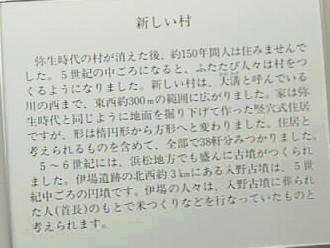 新しい村
弥生時代の村が消えた後、約150年間人は住みませんで
した。5世紀の中ごろになると、ふたたび人々は村をつ
くるようになりました。新しい村は、大溝と呼んでいる
川の西まで、東西約300mの範囲に広がりました。家は弥
生時代と同じように地面を掘り下げて作った竪穴式住居
ですが、形は楕円形から方形へと変わりました。住居と
考えられるものを含めて、全部で38軒分みつかりました。
5～6世紀には、浜松地方でも盛んに古墳がつくられ
ました。伊場遺跡の北西約3kmにある入野古墳は、5世
紀中ごろの円墳です。伊場の人々は、入野古墳に葬られ
た人(首長)のもとで米つくりなどを行なっていたものと
考えられます。